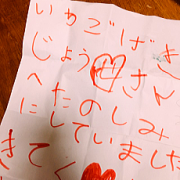 いちごげき
じょう世さん
へたのしみ
にしていました
きてく